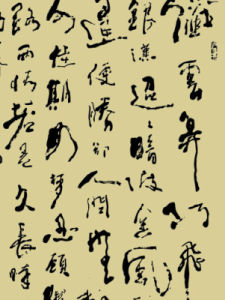 纖雲弄巧飛
銀漢迢〻暗度金風
逢便勝卻人間無
佳期如夢忍顧
路兩情若是久長時